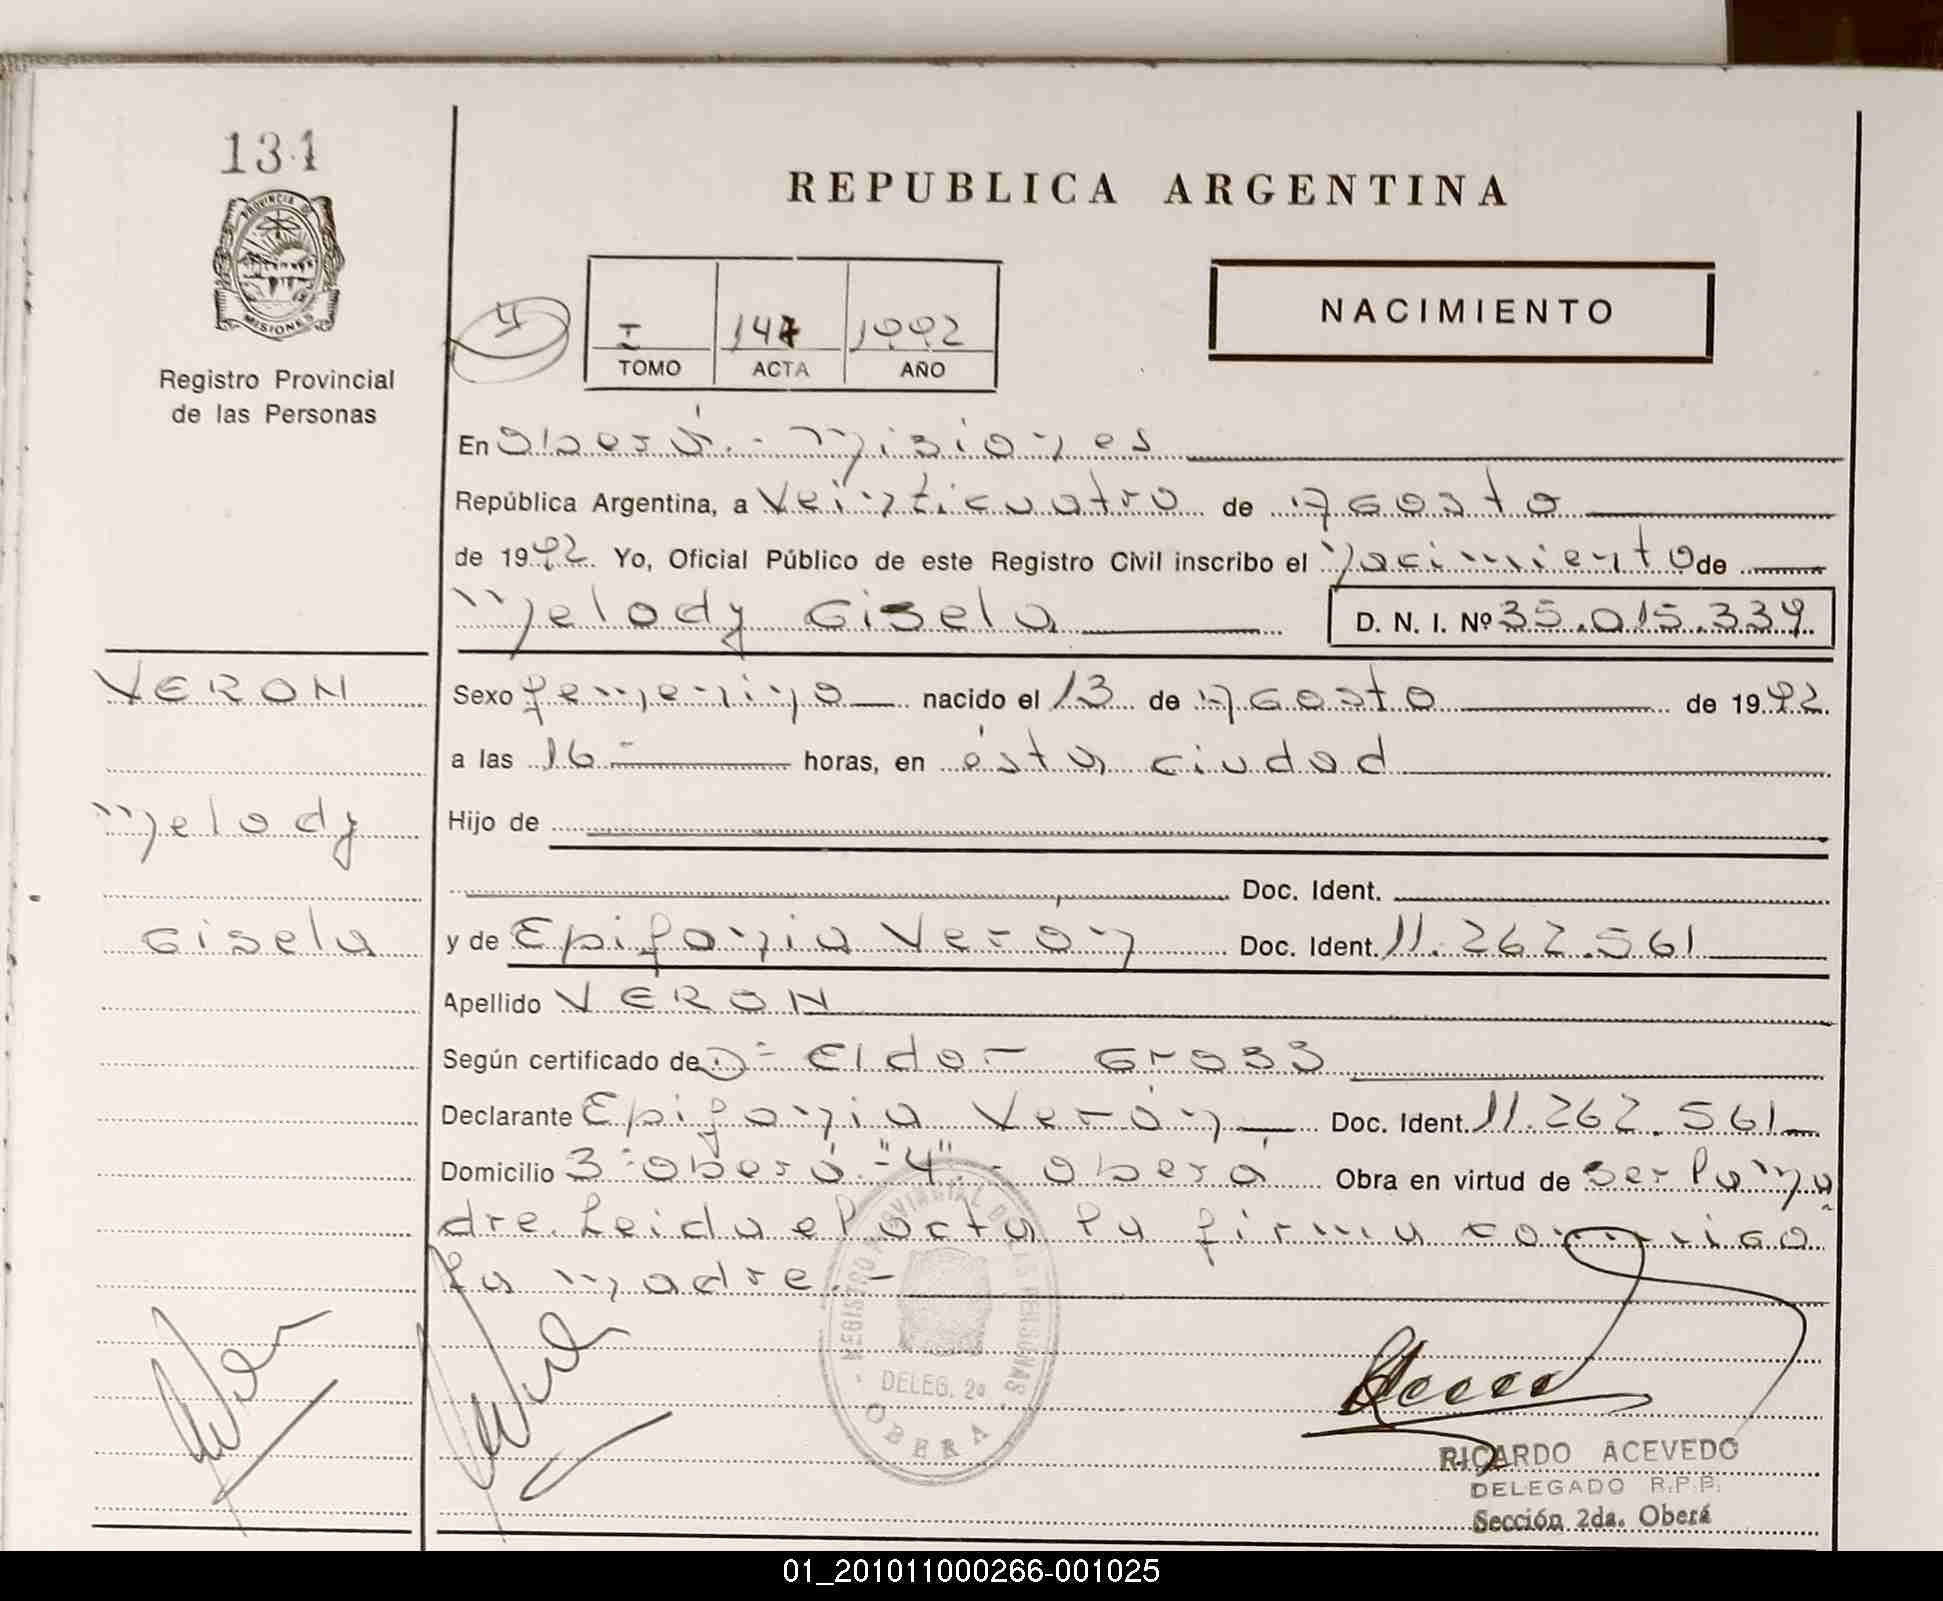 131
PROVINCIA DE
MISIONES
Registro Provincial
de las Personas
REPUBLICA ARGENTINA
NACIMIENTO
I 147 1992
TOMO ACTA AÑO
En Oberá.- Misiones
República Argentina, a Veinticuatro de Agosto
de 1992. Yo, Oficial Público de este Registro Civil inscribo el Nacimiento de
Melody Gisela D. N. I. Nº 35.015.339
VERON
Melody
Gisela
Sexo femenino nacido el 13 de Agosto de 1992.
a las 16- horas, en ésta ciudad
Hijo de
Doc. Ident.
y de Epifania Verón Doc. Ident. 11.262.561
Apellido VERON
Según certificado de D= Eldor Gross
Declarante Epifania Verón Doc. Ident. 11.262.561
Domicilio 3= Oberá-"4"- Oberá Obra en virtud de ser la ma
dre. Leida el acta la firma conmigo
la madre.-
REGISTRO PROVINCIAL DE LAS PERSONAS
DELEG. 2a
OBERA
RICARDO ACEVEDO
DELEGADO R.P.P.
Sección 2da. Oberá
01_201011000266-001025